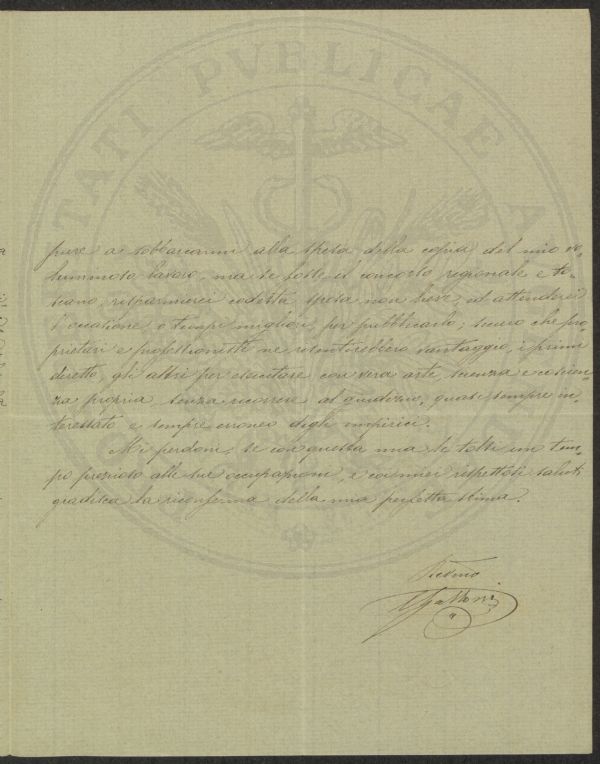 TATI PVBLICAE
pure a sobbarcarmi alla spesa della copia del mio vo-
luminoso lavoro, ma se fosse il concorso regionale e to-
scano, risparmierei codesta spesa non lieve, ed attenderei
l'occasione e tempi migliori, per pubblicarlo; sicuro che pro-
prietari e professionisti ne risentirebbero vantaggio, i primi
diretto, gli altri per esercitare con vera arte, scienza e coscien-
za propria, senza ricorrere al giudizio, quasi sempre in-
teressato e sempre erroneo degli empirici.
Mi perdoni, se con questa mia le tolsi un tem-
po prezioso alle sue occupazioni, e coi miei rispettosi saluti
gradisca la riconferma della mia perfetta stima.